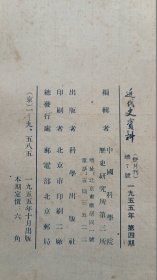 近代史資料
(双月刊)
總7號
一九五五年 第四期
編輯者 中國科學院
歷史研究所第三所
地址:北京東廠胡同一號
出版者 科學出版社
印刷者 北京市印刷二廠
總發行處 郵電部北京郵局
(京)一—九、五八五
一九五五年十月出版
本期定價:六角